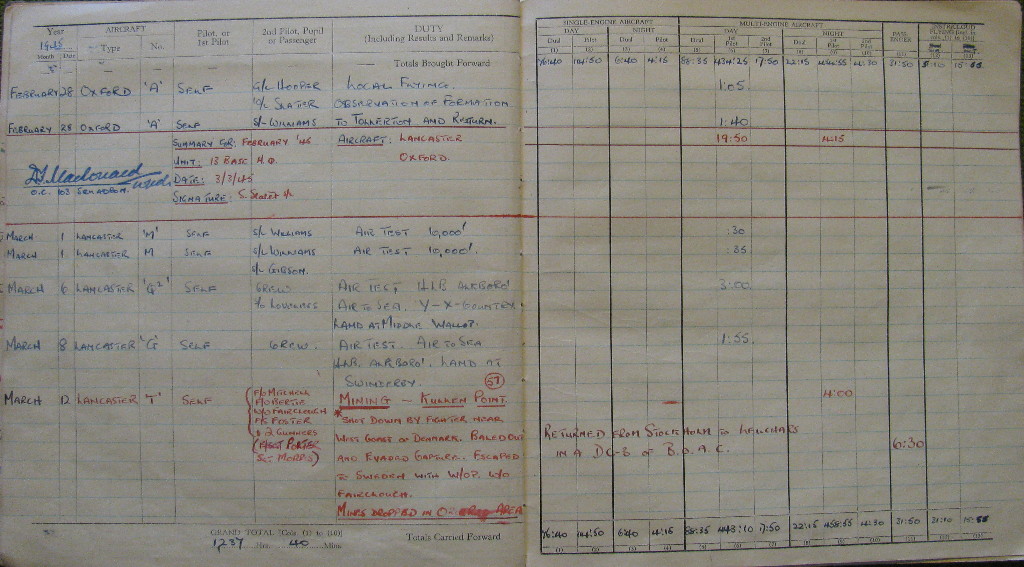 Year AIRCRAFT Pilot, or 1st Pilot 2nd Pilot, Pupil or Passenger DUTY (Including Results and Remarks)
1945 Type No.
Month Date
SINGLE-ENGINE AIRCRAFT MULTI-ENGINE AIRCRAFT PASSENGER
DAY NIGHT DAY NIGHT
Dual Pilot Dual Pilot Dual 1st Pilot 2nd Pilot Dual 1st Pilot 2nd Pilot
(1) (2) (3) (4) (5) (6) (7) (8) (9) (10)
Totals Brought Forward
76:40 144:50 6:40 4:15 88:35 434:25 17:50 22:15 14:30 31:50
FEBRUARY 28 OXFORD 'A' SELF G/C HOOPER LOCAL FLYING. 1:05
SLATER OBSERVATION OF FORMATION
FEBRUARY 28 OXFORD 'A' SELF S/L WILLIAMS TO TOLLERTON AND RETURN. 1:40
SUMMARY FOR: FEBRUARY '45 AIRCRAFT: LANCASTER 19:50 4:15
UNIT: 13 BASE H.Q. OXFORD.
Macdonald
DATE: 3/3/45
O.C. 103 SQUADRON.
SIGNATURE: S. Slater
MARCH 1 LANCASTER 'M' SELF S/L WILLIAMS AIR TEST 10,000' :30
MARCH 1 LANCASTER M SELF S/L WILLIAMS AIR TEST 10,000'. :35
S/L GIBSON.
MARCH 6 LANCASTER 'G²' SELF CREW AIR TEST H.L.B. ALKBORO' 3:00
AIR TO SEA. Y-X-COUNTRY
LAND AT MIDDLE WALLOP.
MARCH 8 LANCASTER 'G' SELF CREW. AIR TEST. AIR TO SEA 1:55
H.L.B. ALKBORO'. LAND AT
SWINDERBY.
57
MARCH 12 LANCASTER 'T' SELF F/O MITCHELL MINING - KULLEN POINT. 4:00
F/O BERTIE * SHOT DOWN BY FIGHTER NEAR
W/O FAIRCLOUGH WEST COAST OF DENMARK. BALED OUT
FOSTER AND EVADED CAPTURE. ESCAPED
& 2 GUNNERS TO SWEDEN WITH W/OP. W/O
(F/SGT PORTER FAIRCLOUGH.
SGT MORRIS) MINES DROPPED IN AREA
RETURNED FROM STOCKHOLM TO LEUCHARS 6:30
IN A DC-3 OF B.O.A.C.
GRAND TOTAL [Cols. (1) to (10)]
1237 Hrs. 40 Mins.
Totals Carried Forward
76:40 144:50 6:40 4:15 88:35 443:10 17:50 22:15 458:55 14:30 31:50
(1) (2) (3) (4) (5) (6) (7) (8) (9) (10)